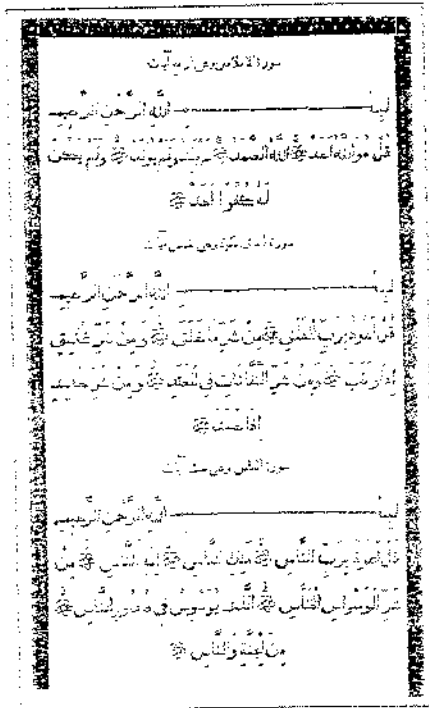 سورة الاخلاص وهى اربع آيات
بسم اللّٰهِ الرَّحْمٰنِ الرَّحِيمِ
قُلْ هو الله احد ۝ الله الصمد ۝ لم يلد ولم يولد ۝ ولم يكن
لَهُ كُفُوًا اَحَدٌ ۝
سورة الفلق مكية وهى خمس آيات
بسم اللّٰهِ الرَّحْمٰنِ الرَّحِيمِ
قُلْ اَعُوذُ بِرَبِّ الْفَلَقِ ۝ مِنْ شَرِّ مَا خَلَقَ ۝ وَمِنْ شَرِّ غَاسِقٍ
اِذَا وَقَبَ ۝ وَمِنْ شَرِّ النَّفَّاثَاتِ فِي الْعُقَدِ ۝ وَمِنْ شَرِّ حَاسِدٍ
اِذَا حَسَدَ ۝
سورة الناس وهى ست آيات
بسم اللّٰهِ الرَّحْمٰنِ الرَّحِيمِ
قُلْ اَعُوذُ بِرَبِّ النَّاسِ ۝ مَلِكِ النَّاسِ ۝ اِلٰهِ النَّاسِ ۝ مِنْ
شَرِّ الْوَسْوَاسِ الْخَنَّاسِ ۝ الَّذِي يُوَسْوِسُ فِي صُدُورِ النَّاسِ ۝
مِنَ الْجِنَّةِ وَالنَّاسِ ۝